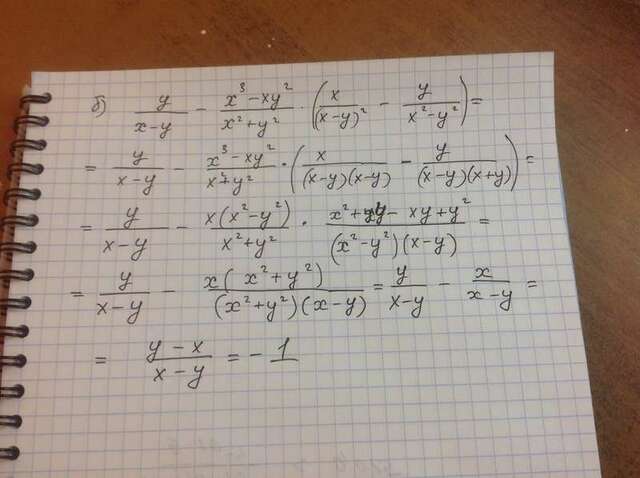 б) y/(x-y) - (x³-xy²)/(x²+y²) · (x/(x-y)² - y/(x²-y²)) =
= y/(x-y) - (x³-xy²)/(x²+y²) · (x/((x-y)(x-y)) - y/((x-y)(x+y))) =
= y/(x-y) - x(x²-y²)/(x²+y²) · (x²+xy-xy+y²)/((x²-y²)(x-y)) =
= y/(x-y) - x(x²+y²)/((x²+y²)(x-y)) = y/(x-y) - x/(x-y) =
= (y-x)/(x-y) = -1